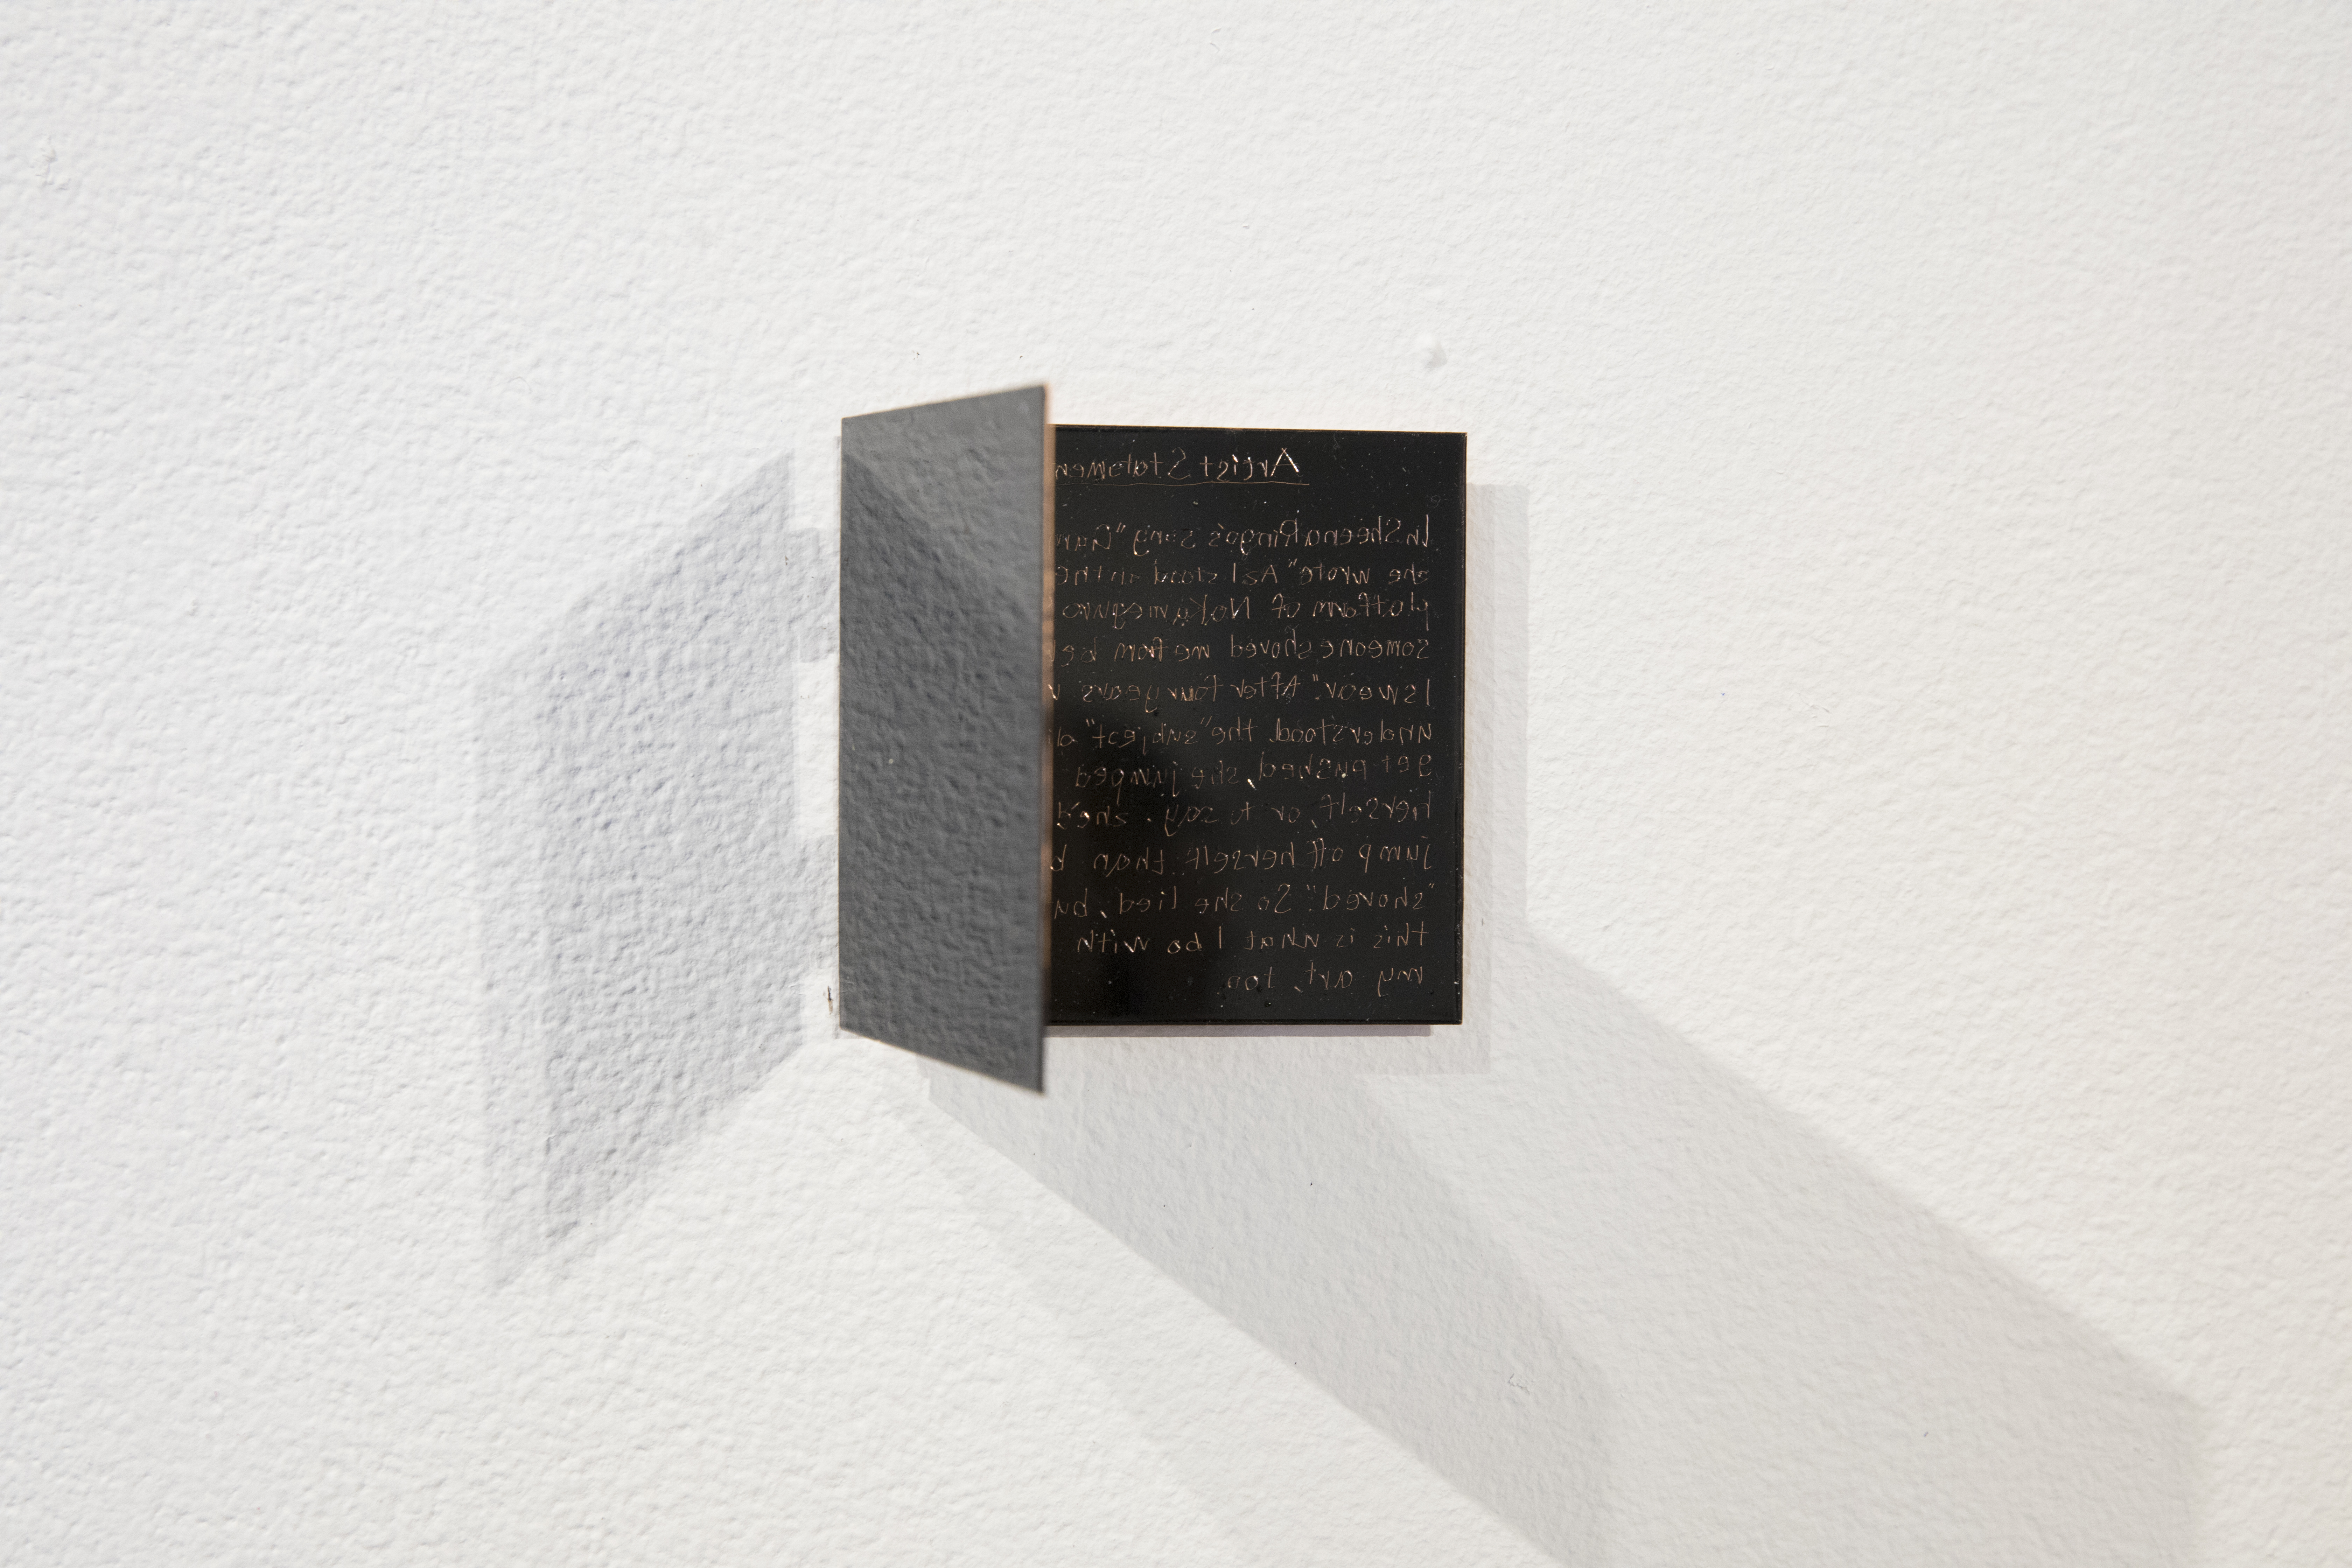 Artist Statemen
In Sheena Ringo's song "Gam
she wrote "As I stood in the
platform of
someone shoved me from be
I swear." After four years
understood the "subject"
get pushed, she jumped
herself, or to say, she'd
jump off herself than b
"shoved." So she lied, bu
this is what I do with
my art, too